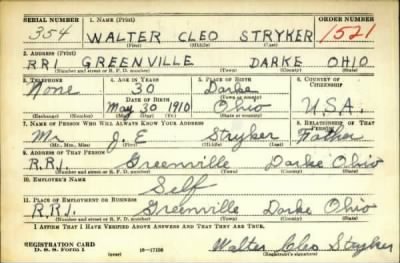 SERIAL NUMBER 1. NAME (Print) ORDER NUMBER
354 WALTER CLEO STRYKER 1521
(First) (Middle) (Last)
2. ADDRESS (Print)
RR1 GREENVILLE DARKE OHIO
(Number and street or R. F. D. number) (Town) (County) (State)
3. TELEPHONE 4. AGE IN YEARS 5. PLACE OF BIRTH 6. COUNTRY OF CITIZENSHIP
None 30 Darke
DATE OF BIRTH (Town or county)
May 30 1910 Ohio U.S.A.
(Exchange) (Number) (Mo.) (Day) (Yr.) (State or country)
7. NAME OF PERSON WHO WILL ALWAYS KNOW YOUR ADDRESS 8. RELATIONSHIP OF THAT PERSON
Mr J. E Stryker Father
(Mr., Mrs., Miss) (First) (Middle) (Last)
9. ADDRESS OF THAT PERSON
R.R.1. Greenville Darke Ohio
(Number and street or R. F. D. number) (Town) (County) (State)
10. EMPLOYER'S NAME
Self
11. PLACE OF EMPLOYMENT OR BUSINESS
R.R.1. Greenville Darke Ohio
(Number and street or R. F. D. number) (Town) (County) (State)
I AFFIRM THAT I HAVE VERIFIED ABOVE ANSWERS AND THAT THEY ARE TRUE.
REGISTRATION CARD
D. S. S. Form 1 (over) Walter Cleo Stryker
(Registrant's signature)